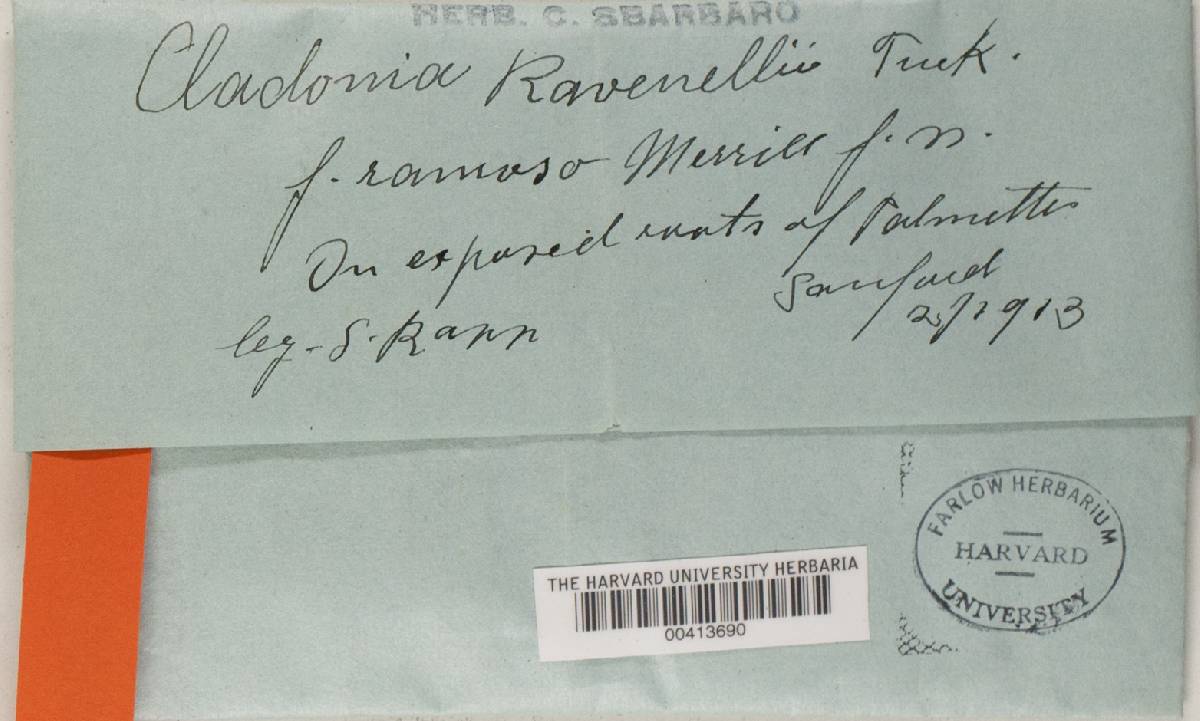 HERB. C. SBARBARO
Cladonia Ravenellii Tuck.
f. ramosa Merrill f. n.
On exposed roots of Palmetto
Sanford
leg. S. Rapp
2/1913
FARLOW HERBARIUM
HARVARD
UNIVERSITY
THE HARVARD UNIVERSITY HERBARIA
00413690